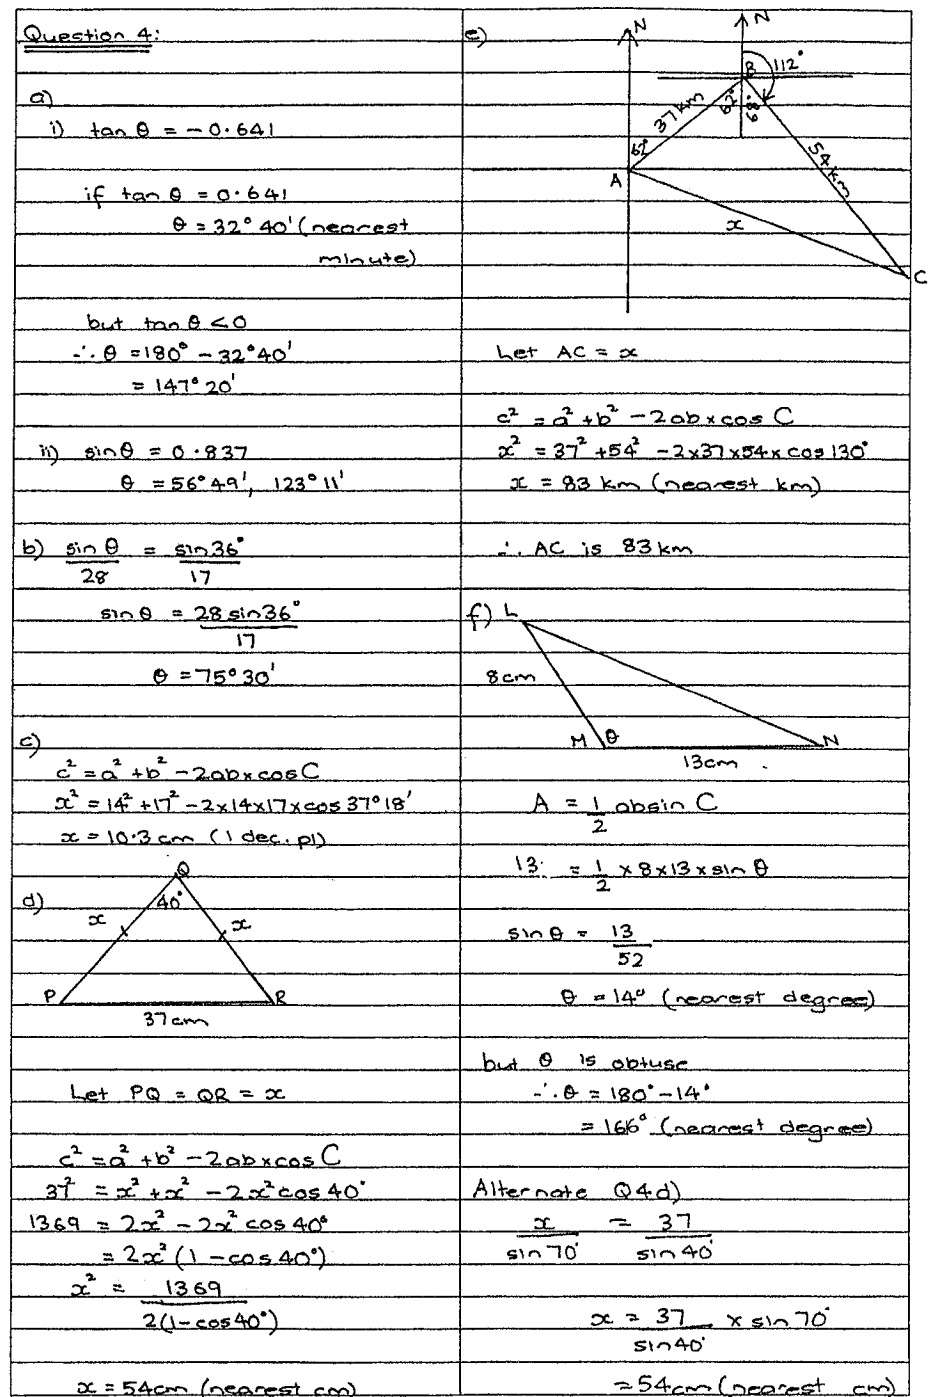 Question 4:
a)
i) tan θ = -0.641
if tan θ = 0.641
θ = 32°40' (nearest
minute)
but tan θ < 0
∴ θ = 180° - 32°40'
= 147°20'
ii) sin θ = 0.837
θ = 56°49', 123°11'
b) sin θ / 28 = sin 36° / 17
sin θ = 28 sin 36° / 17
θ = 75°30'
c)
c² = a² + b² - 2ab x cos C
x² = 14² + 17² - 2x14x17x cos 37°18'
x = 10.3 cm (1 dec. pl)
d)
Q
40°
x
x
P
R
37 cm
Let PQ = QR = x
c² = a² + b² - 2ab x cos C
37² = x² + x² - 2x² cos 40°
1369 = 2x² - 2x² cos 40°
= 2x² (1 - cos 40°)
x² = 1369 / 2(1 - cos 40°)
x = 54 cm (nearest cm)
e)
N
N
B
112°
37 km
62°
68°
62°
54 km
A
x
C
Let AC = x
c² = a² + b² - 2ab x cos C
x² = 37² + 54² - 2x37x54x cos 130°
x = 83 km (nearest km)
∴ AC is 83 km
f)
L
8 cm
M
θ
N
13 cm
A = 1/2 ab sin C
13 = 1/2 x 8 x 13 x sin θ
sin θ = 13 / 52
θ = 14° (nearest degree)
but θ is obtuse
∴ θ = 180° - 14°
= 166° (nearest degree)
Alternate Q4d)
x / sin 70° = 37 / sin 40°
x = 37 / sin 40° x sin 70°
= 54 cm (nearest cm)